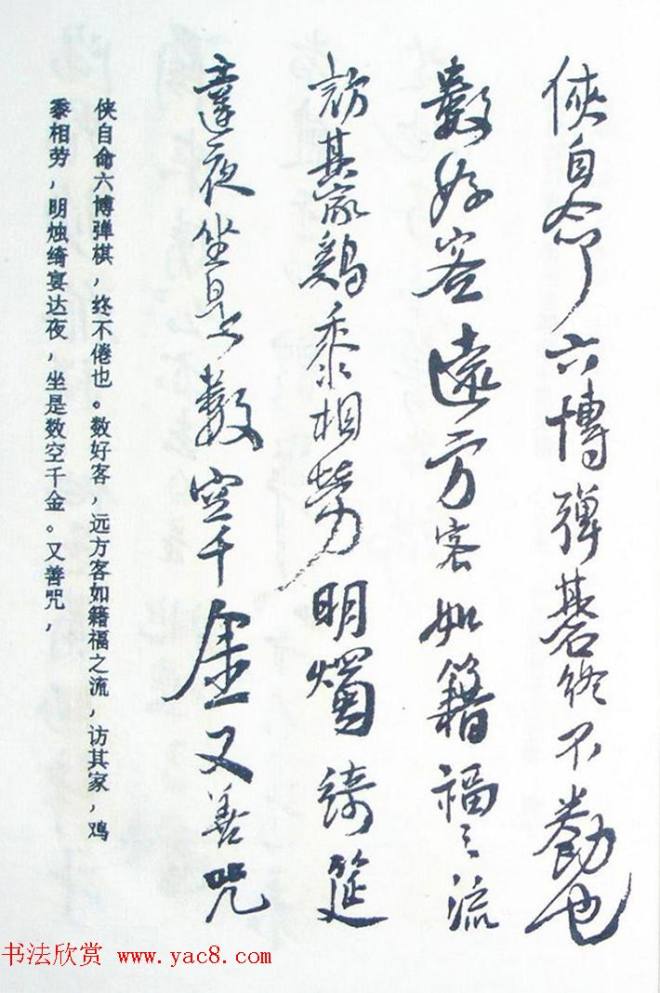 侠自命六博彈碁終不勌也
數好客遠方客如籍福之流
訪其家鷄黍相勞明燭綺筵
達夜坐是數空千金又善咒
侠自命六博弹棋，终不倦也。数好客，远方客如籍福之流，访其家，鸡
黍相劳，明烛绮宴达夜，坐是数空千金。又善咒，
书法欣赏 www.yac8.com